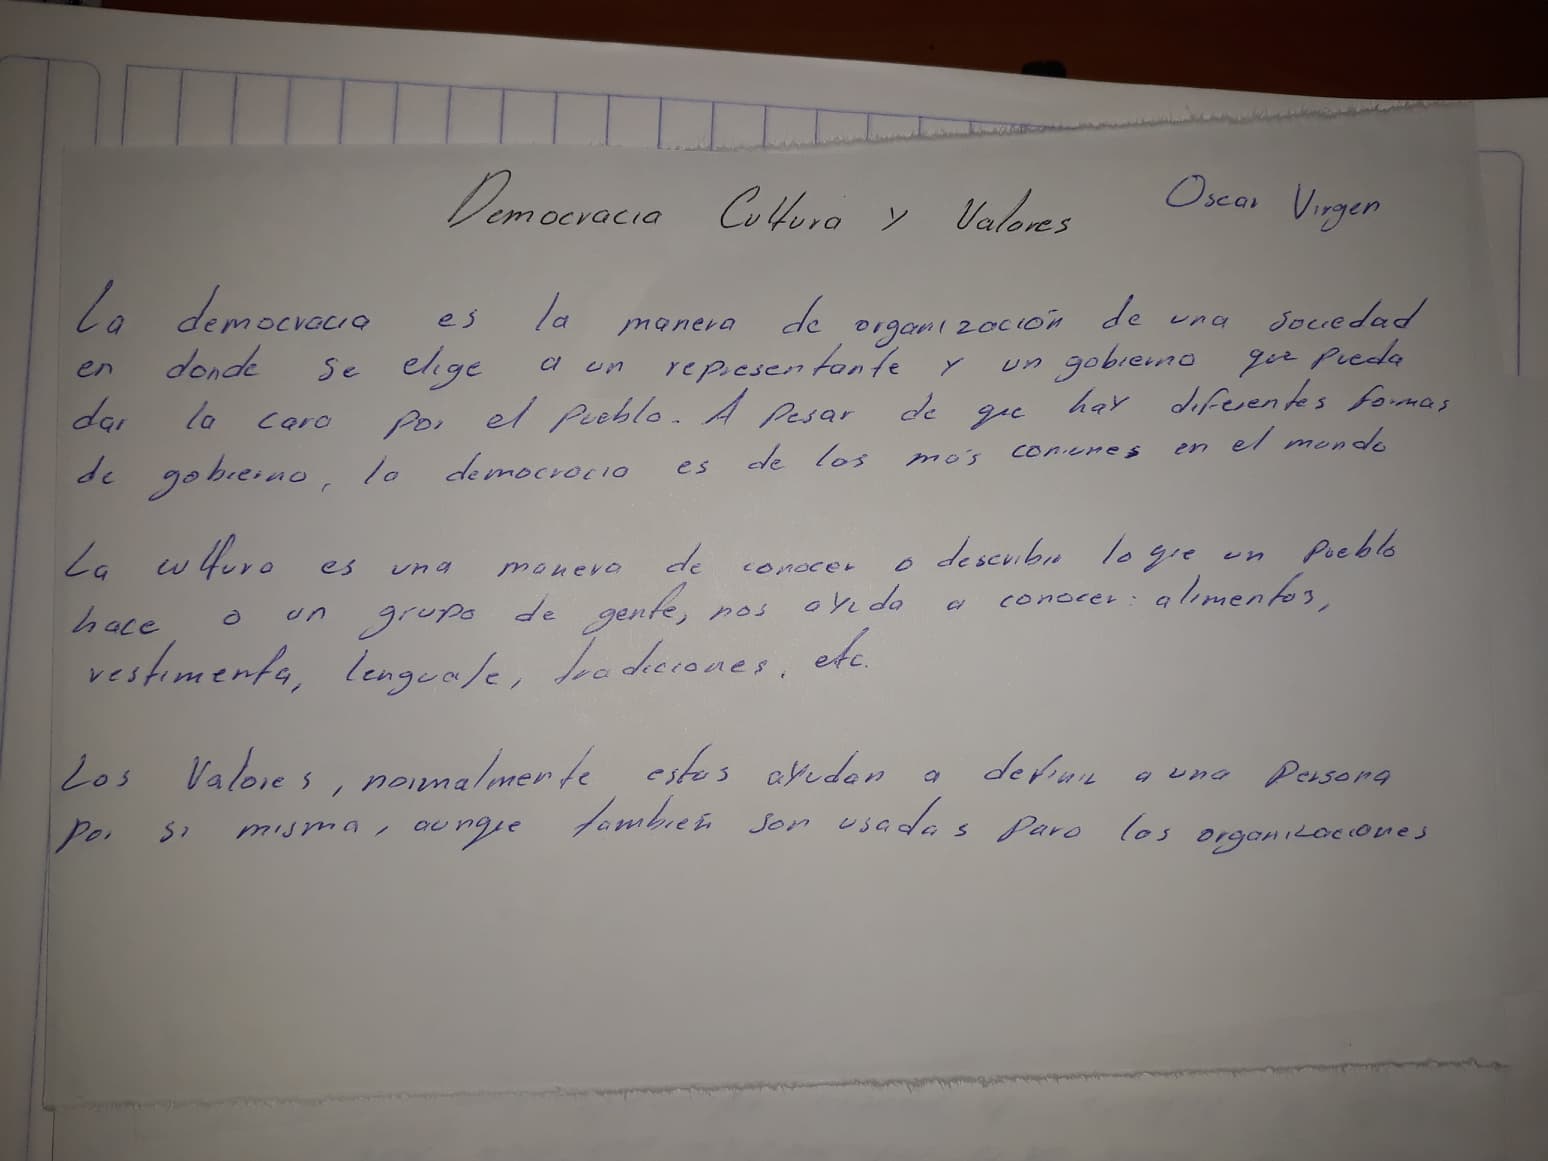 Democracia Cultura y Valores Oscar Virgen
La democracia es la manera de organización de una sociedad
en donde se elige a un representante y un gobierno que pueda
dar la cara por el pueblo. A pesar de que hay diferentes formas
de gobierno, la democracia es de las más comunes en el mundo
La cultura es una manera de conocer o describir lo que un pueblo
hace o un grupo de gente, nos ayuda a conocer: alimentos,
vestimenta, lenguaje, tradiciones, etc.
Los Valores, normalmente estas ayudan a definir a una persona
por si misma, aunque también son usadas para las organizaciones